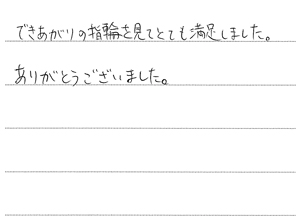 できあがりの指輪を見てとても満足しました。
ありがとうございました。